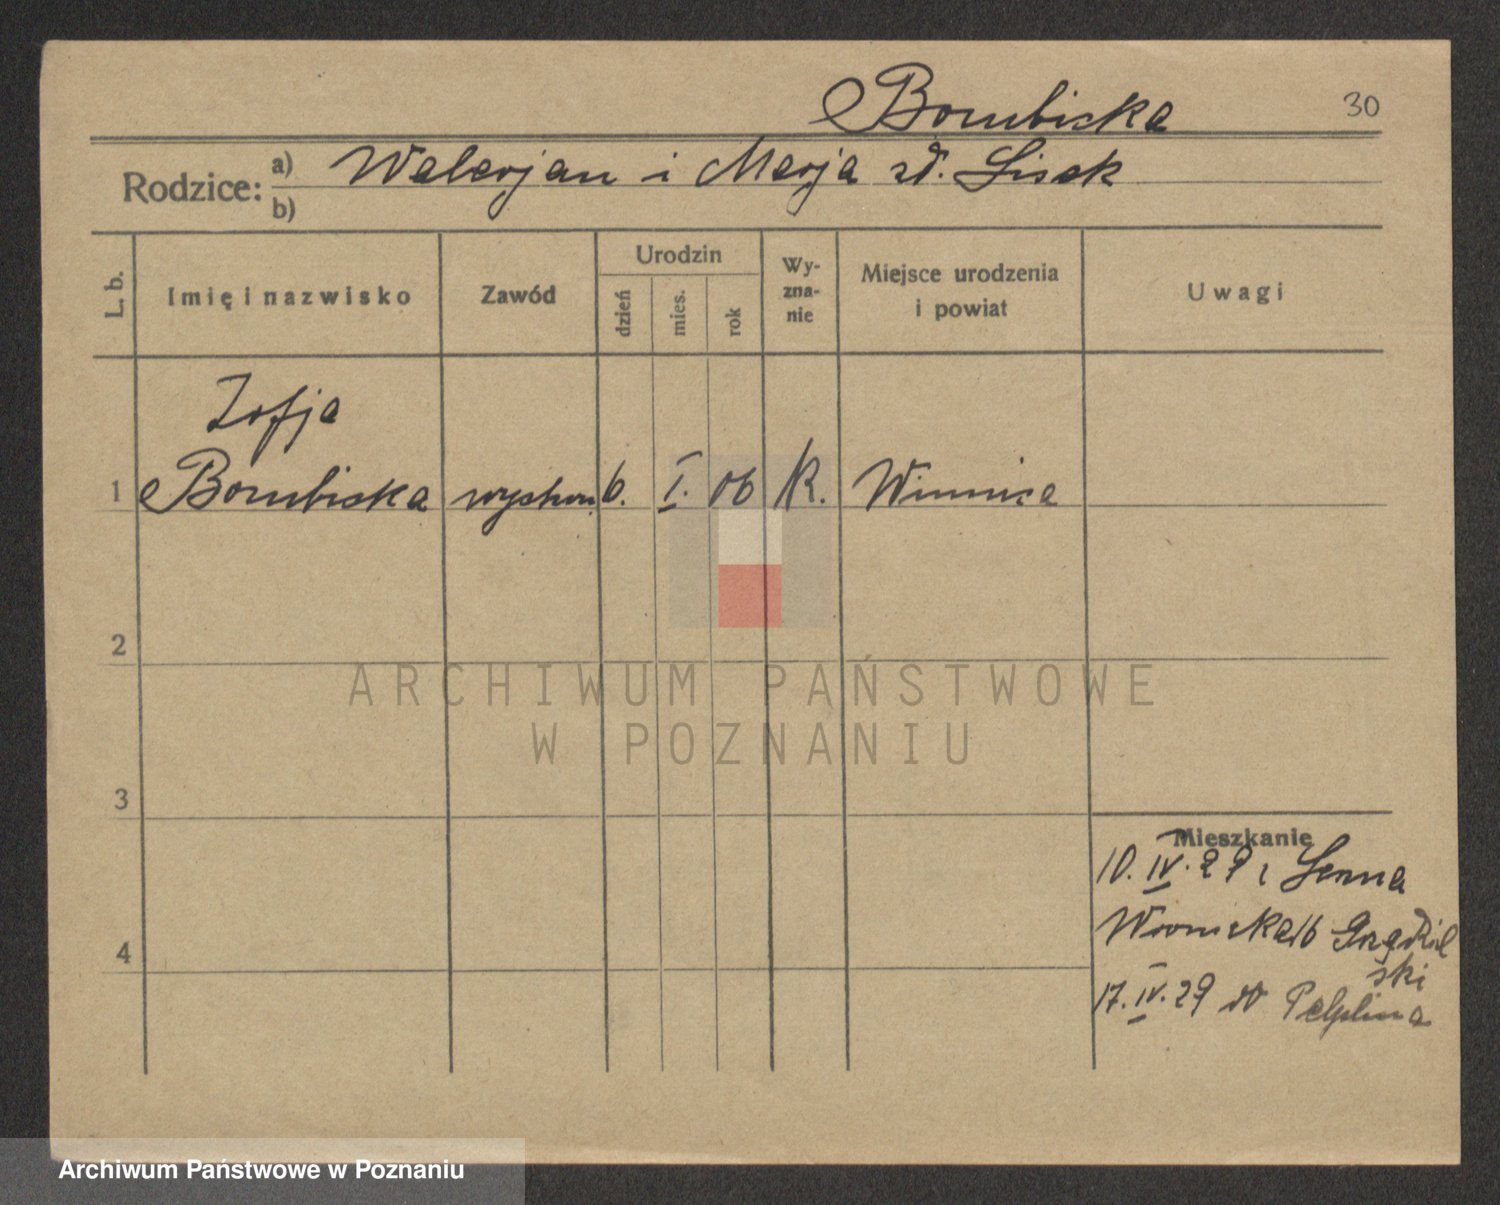 Bombicka
30
Rodzice: a) Walerjan i Marja zd. Lisak
b)
L. b. Imię i nazwisko Zawód Urodzin dzień mies. rok Wyznanie Miejsce urodzenia i powiat Uwagi
Zofja
1 Bombicka wychow. 6. I. 06 K. Winnica
2
ARCHIWUM PAŃSTWOWE
W POZNANIU
3
Mieszkanie
10. IV. 29 z
4
ski
17. IV. 29 do Pelplina
Archiwum Państwowe w Poznaniu